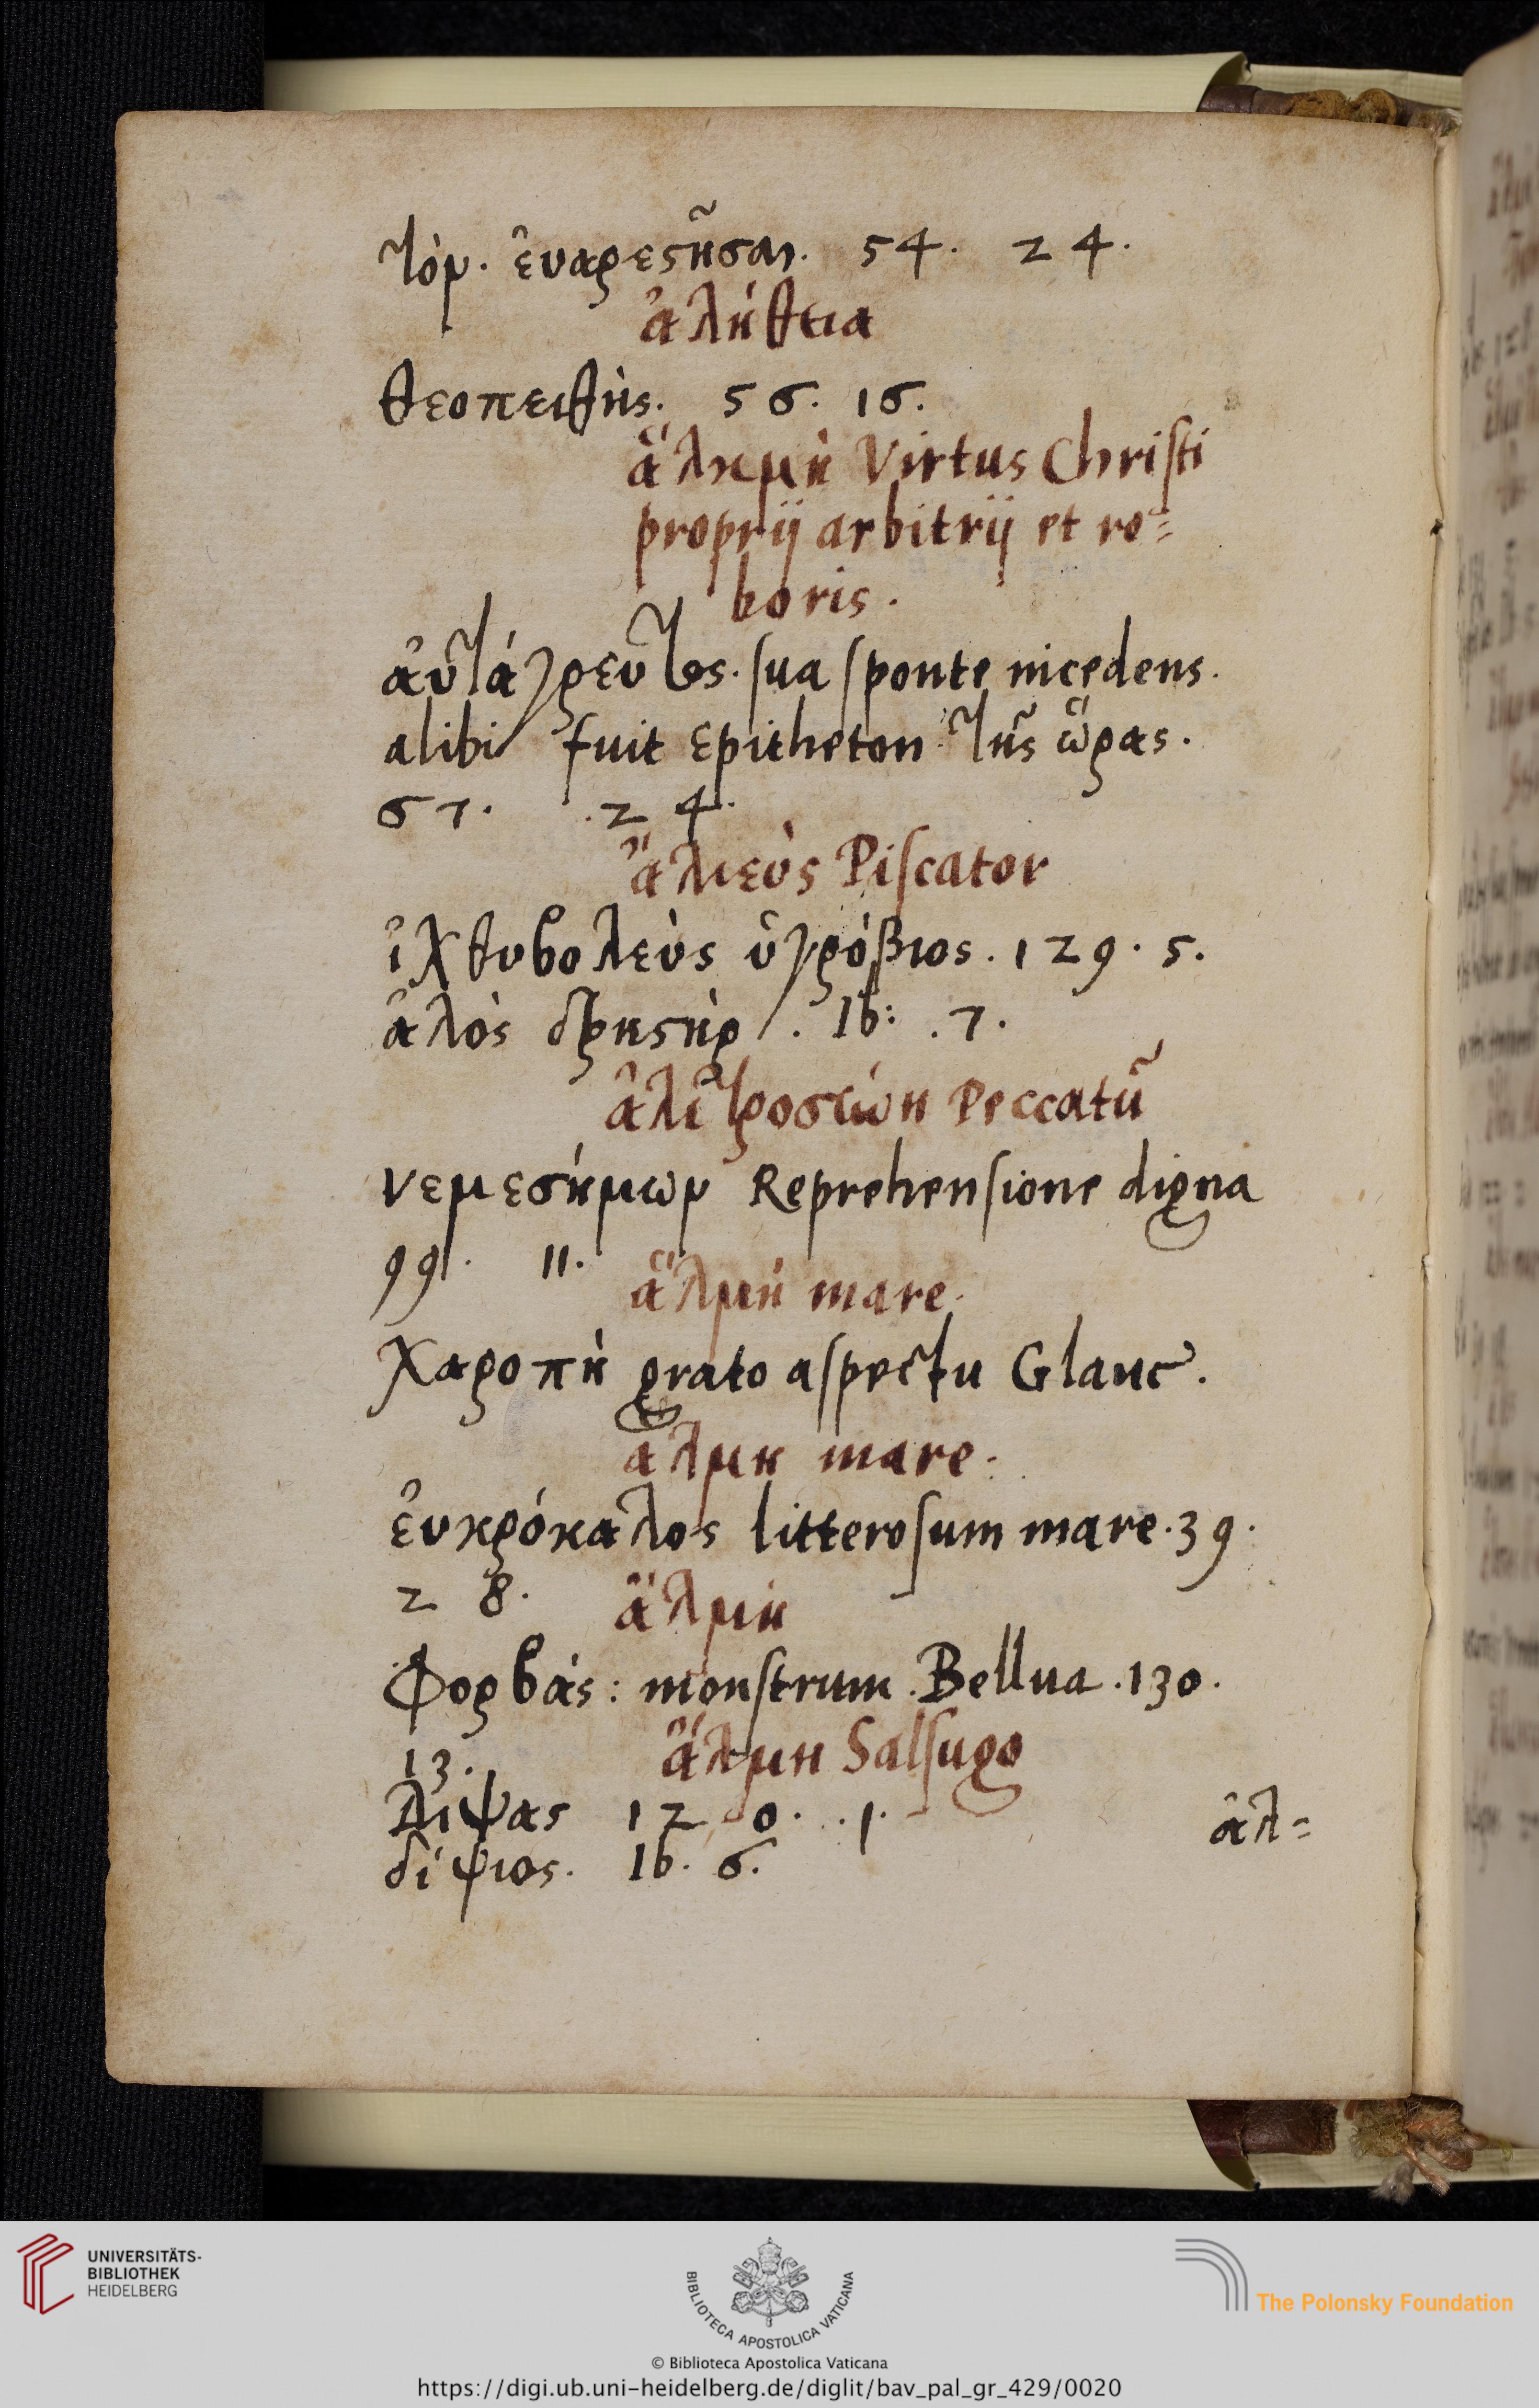 τόν. ἐυαρεστῆσαι. 54. 24.
ἀλήθεια
θεοπειθὴς. 56. 16.
ἄλκμὴ Virtus Christi
proprij arbitrij et ro=
boris.
ἀυτάγρευτος. sua sponte incedens.
alibi fuit Epitheton τῆς ὥρας.
67. .24.
ἅλιεὺς Piscator
ἰχθυβολεὺς ὑγρόβιος. 129. 5.
ἁλὸς δρηστὴρ. Ib: .7.
ἀλιτροσύνη Peccatũ
νεμεσήμων Reprehensione digna
99. 11.
ἅλμή mare.
χαροπὴ grato aspectu Glauc.
αλμη mare.
ἐυκρόκαλος litterosum mare. 39.
28.
ἅλμη
Φορβάς: monstrum. Bellua. 130.
13.
ἅλμη Salsugo
λιψας 120. .1.
δίψιος. Ib. 6.
ἁλ=
UNIVERSITÄTS-
BIBLIOTHEK
HEIDELBERG
BIBLIOTECA APOSTOLICA VATICANA
© Biblioteca Apostolica Vaticana
The Polonsky Foundation
https://digi.ub.uni-heidelberg.de/diglit/bav_pal_gr_429/0020